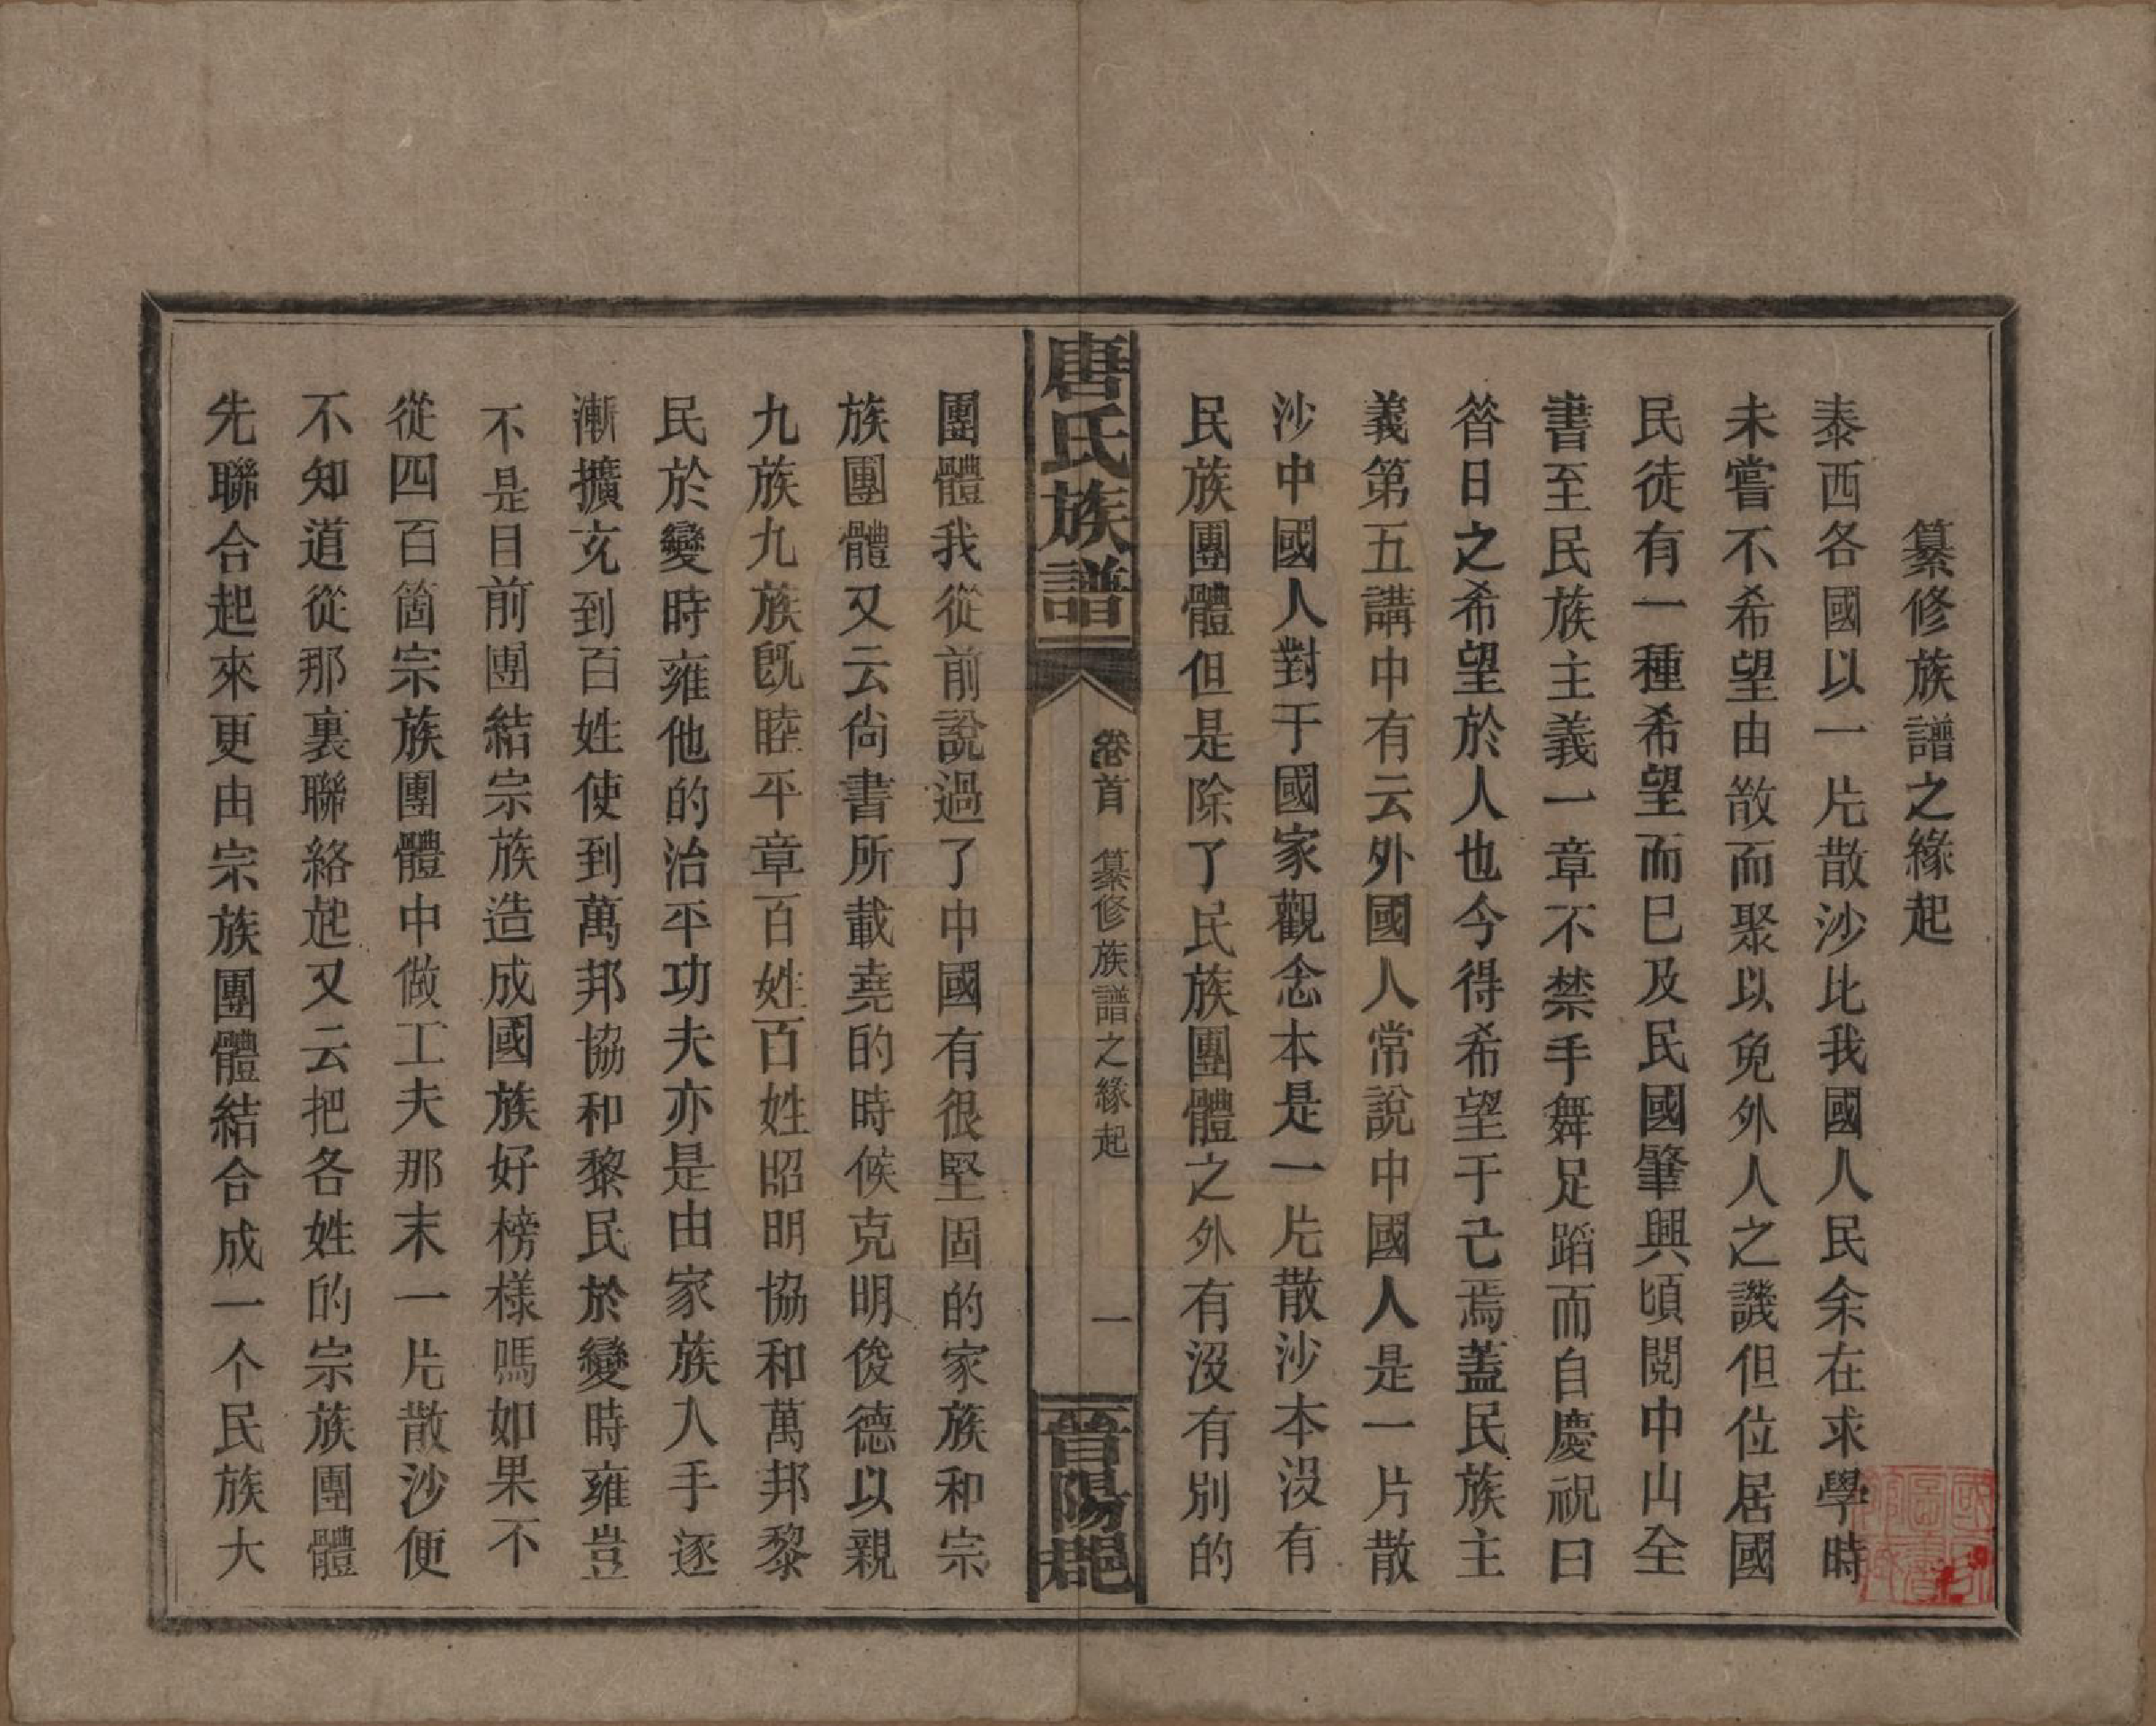 纂修族譜之緣起
泰西各國以一片散沙比我國人民余在求學時
未嘗不希望由散而聚以免外人之譏但位居國
民徒有一種希望而巳及民國肇興頃閱中山全
書至民族主義一章不禁手舞足蹈而自慶祝曰
昝日之希望於人也今得希望于已焉蓋民族主
義第五講中有云外國人常說中國人是一片散
沙中國人對于國家觀念本是一片散沙本沒有
民族團體但是除了民族團體之外有沒有別的
唐氏族譜
卷首
纂修族譜之緣起
一
晉陽郡
團體我從前說過了中國有很堅固的家族和宗
族團體又云尙書所載堯的時候克明俊德以親
九族九族旣睦平章百姓百姓昭明協和萬邦黎
民於變時雍他的治平功夫亦是由家族人手逐
漸擴充到百姓使到萬邦協和黎民於變時雍豈
不是目前團結宗族造成國族好榜樣嗎如果不
從四百箇宗族團體中做工夫那末一片散沙便
不知道從那裏聯絡起又云把各姓的宗族團體
先聯合起來更由宗族團體結合成一个民族大